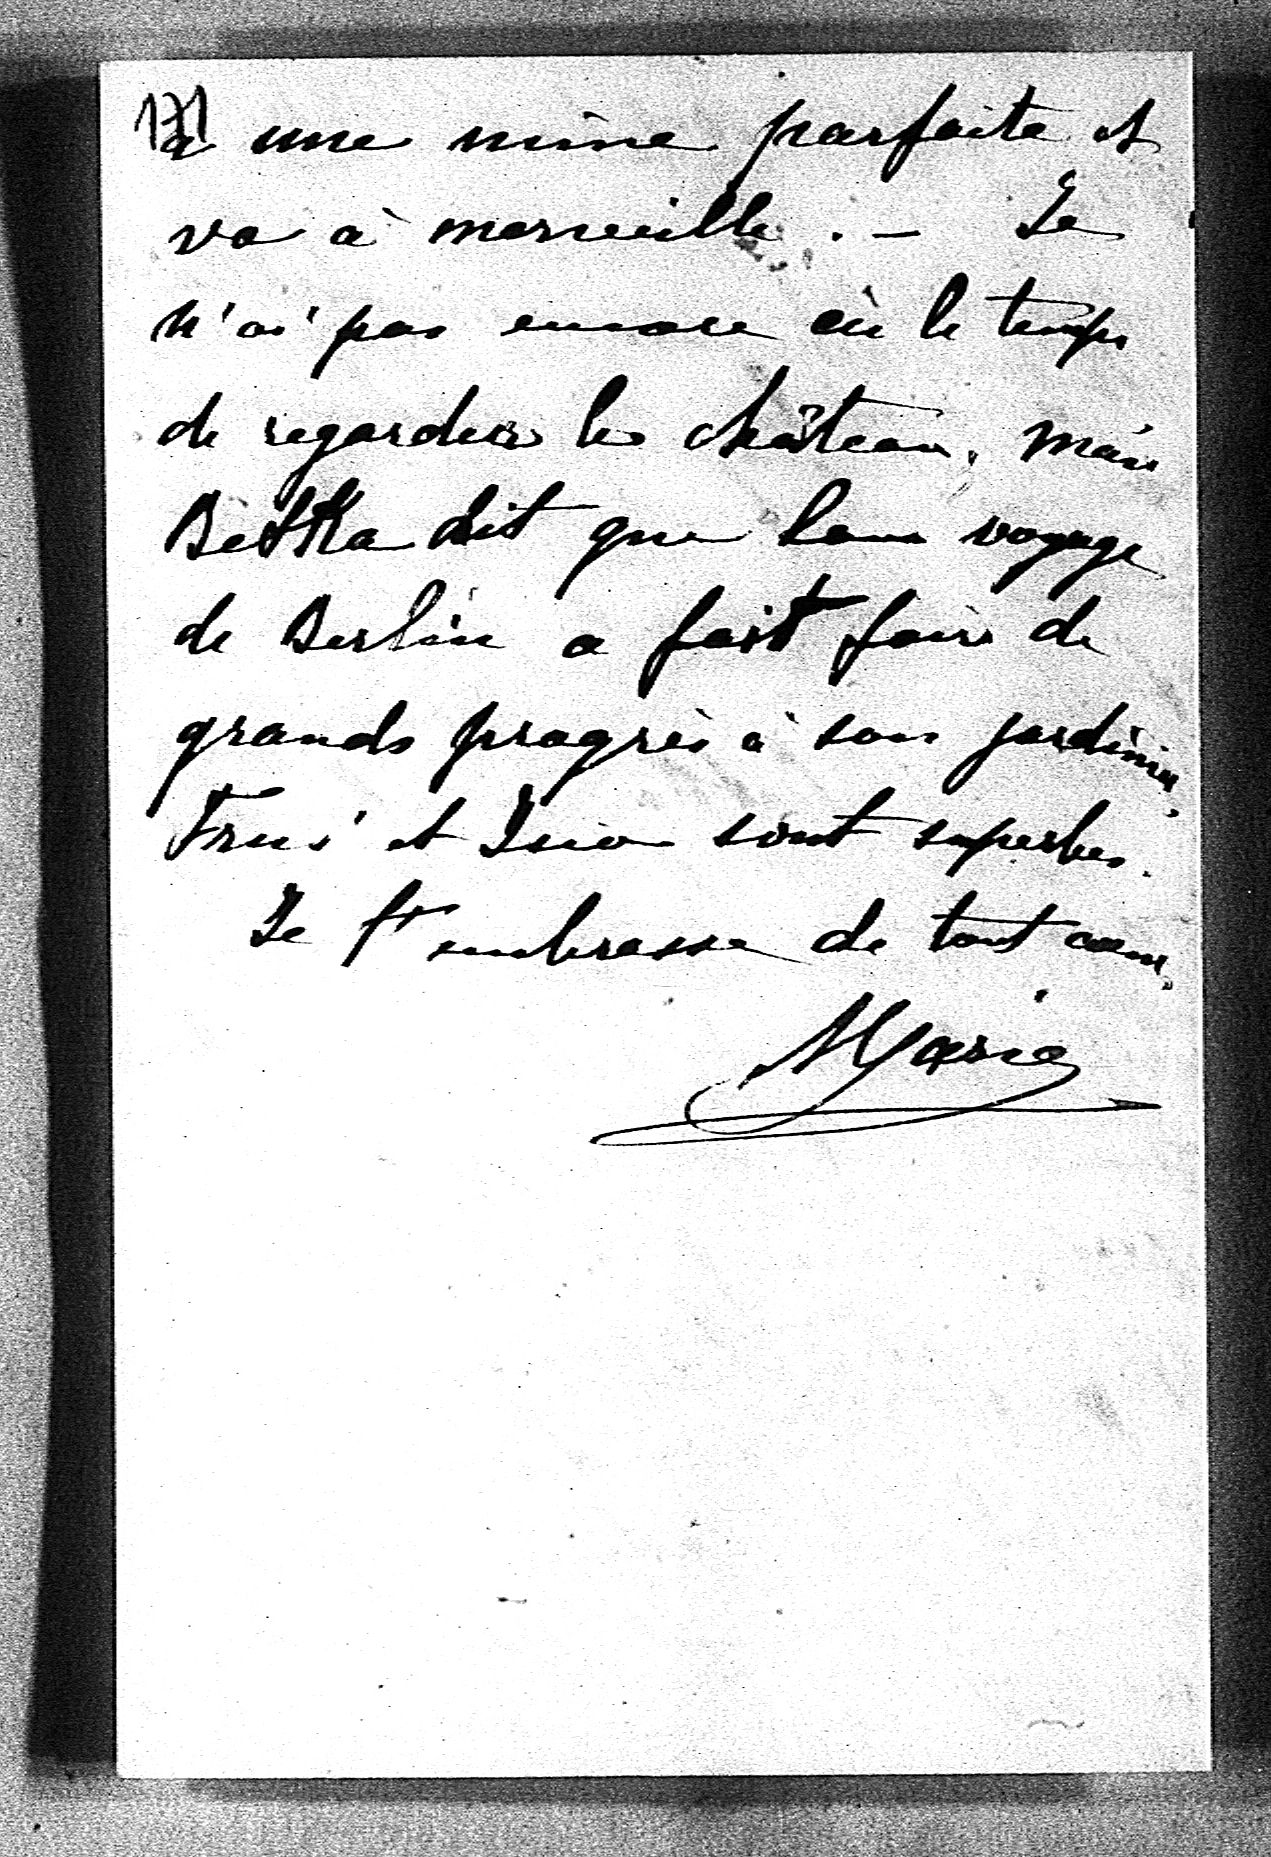 171
a une mine parfaite et
va à merveille. – Je
n'ai pas encore eù le temps
de regarder le château, mais
Betka dit que leur voyage
de Berlin a fait faire de
grands progrès à son jardinier,
et sont superbes.
Je t' embrasse de tout cœur,
Marie